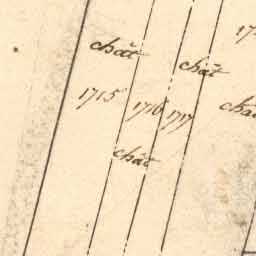 chât
chât
1715
1716
1717
chât